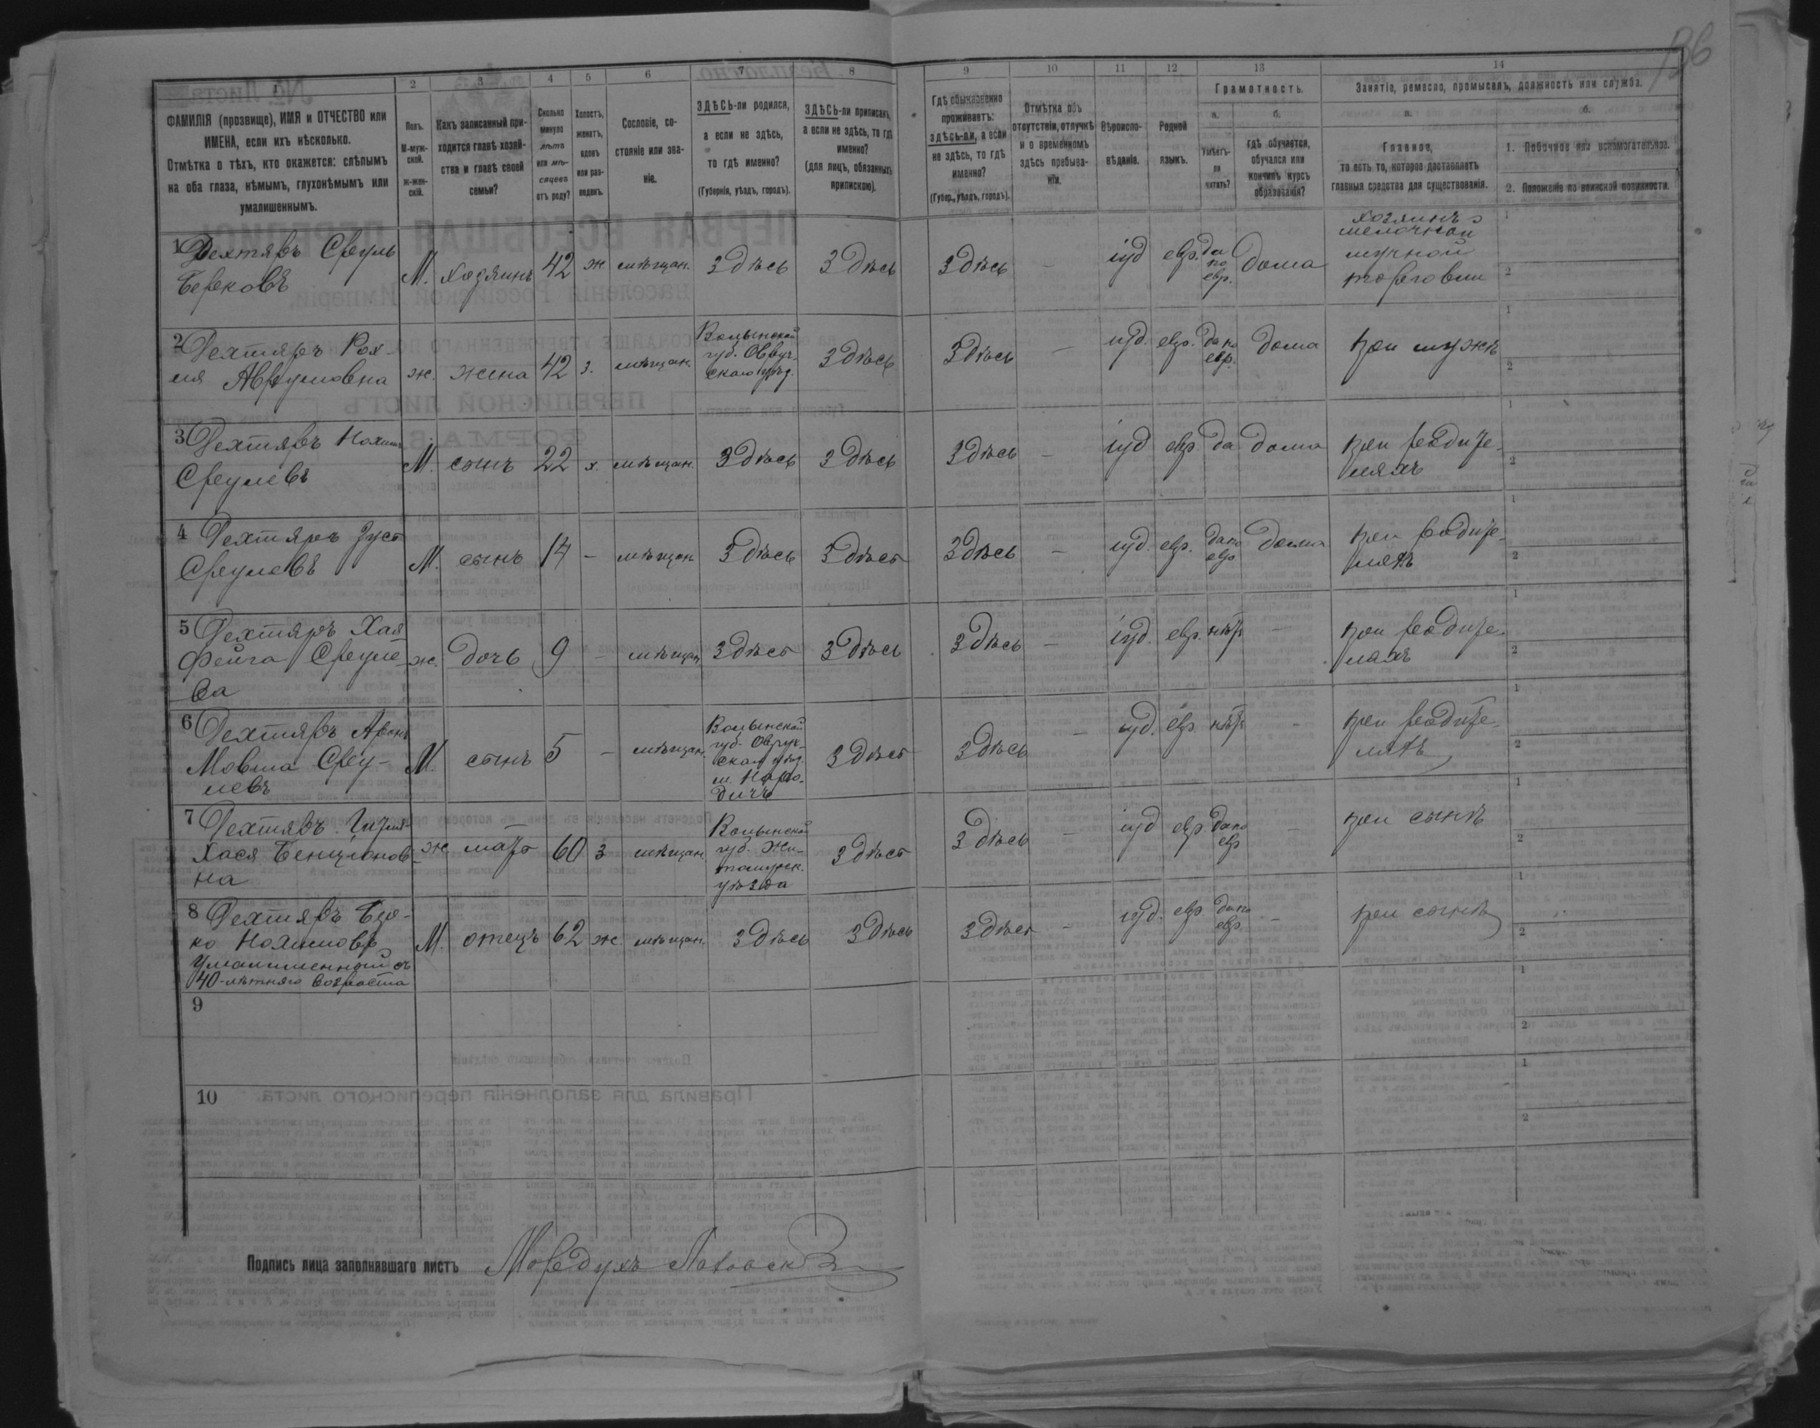 136
1
2
3
4
5
6
7
8
9
10
11
12
13
14
ФАМИЛІЯ (прозвище), ИМЯ и ОТЧЕСТВО или
ИМЕНА, если ихъ нѣсколько.
Отмѣтка о тѣхъ, кто окажется: слѣпымъ
на оба глаза, нѣмымъ, глухонѣмымъ или
умалишеннымъ.
Полъ.
М-муж-
ской.
Ж-жен-
скій.
Какъ записанный при-
ходится главѣ хозяй-
ства и главѣ своей
семьи?
Сколько
минуло
лѣтъ
или мѣ-
сяцевъ
отъ роду?
Холостъ,
женатъ,
вдовъ
или раз-
веденъ.
Сословіе, со-
стояніе или зва-
ніе.
ЗДѢСЬ-ли родился,
а если не здѣсь,
то гдѣ именно?
(Губернія, уѣздъ, городъ).
ЗДѢСЬ-ли приписанъ,
а если не здѣсь, то гдѣ
именно?
(для лицъ, обязанныхъ
припискою).
Гдѣ обыкновенно
проживаетъ:
здѣсь-ли, а если
не здѣсь, то гдѣ
именно?
(Губер., уѣздъ, городъ).
Отмѣтка объ
отсутствіи, отлучкѣ
и о временномъ
здѣсь пребыва-
ніи.
Вѣроиспо-
вѣданіе.
Родной
языкъ.
Грамотность.
а.
Умѣетъ-
ли
читать?
б.
гдѣ обучается,
обучался или
кончилъ курсъ
образованія?
Занятіе, ремесло, промыселъ, должность или служба.
а.
Главное,
то есть то, которое доставляетъ
главныя средства для существованія.
б.
1. Побочное или вспомогательное.
2. Положеніе по воинской повинности.
1 Дехтяръ Сруль
Берковъ
М. хозяинъ 42 ж мѣщан. Здѣсь Здѣсь Здѣсь — іуд евр. да
по
евр. дома
хозяинъ
мелочной
мучной
торговли
2 Дехтяръ Рох-
ля Аврумовна
ж. жена 42 з. мѣщан.
Волынской
губ. Овруч-
скаго уѣзд.
Здѣсь Здѣсь — іуд. евр. да по
евр. дома при мужѣ
3 Дехтяръ
Срулевъ
М. сынъ 22 х. мѣщан. Здѣсь Здѣсь Здѣсь — іуд евр да дома при родите-
ляхъ
4 Дехтяръ Зусь
Срулевъ
М. сынъ 14 — мѣщан Здѣсь Здѣсь Здѣсь — іуд. евр. да по
евр дома при родите-
ляхъ
5 Дехтяръ Хая
Фейга Сруле-
ва
ж. дочь 9 — мѣщан. Здѣсь Здѣсь Здѣсь — іуд. евр. нѣтъ — при родите-
ляхъ
6 Дехтяръ Аронъ
Мовша Сру-
левъ
М. сынъ 5 — мѣщан.
Волынской
губ. Овруч-
скаго уѣзд.
м. Наро-
дичъ
Здѣсь Здѣсь — іуд. евр нѣтъ — при родите-
ляхъ
7 Дехтяръ
Хася Бенціонов-
на
ж мать 60 з мѣщан.
Волынской
губ. Жи-
томирск.
уѣзда
Здѣсь Здѣсь — іуд евр. да по
евр — при сынѣ
8 Дехтяръ
ко Нохимовъ
умалишенный съ
40-лѣтняго возраста
М. отецъ 62 ж. мѣщан. Здѣсь Здѣсь Здѣсь — іуд. евр да по
евр. — при сынѣ
9
10
Подпись лица заполнявшаго листъ Мордухъ